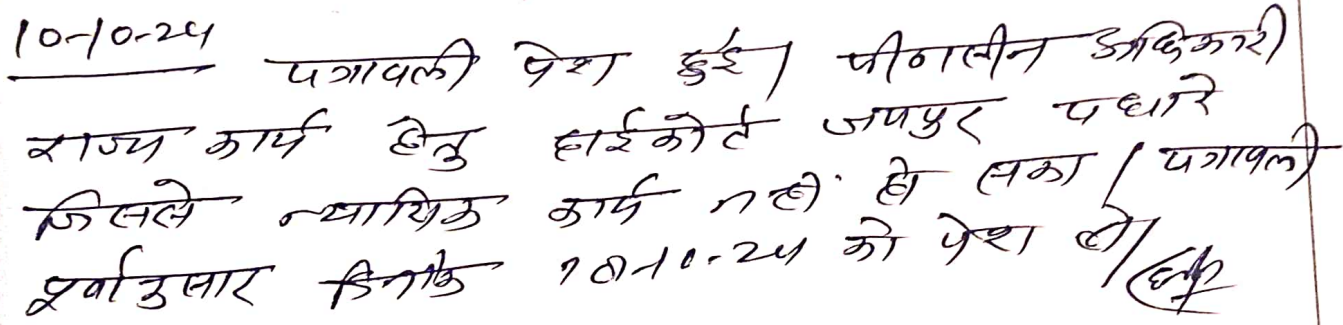 10-10-24 पत्रावली पेश हुई। पीठासीन अधिकारी
राज्य कार्य हेतु हाईकोर्ट जयपुर पधारे
जिससे न्यायिक कार्य नहीं हो सका। पत्रावली
पूर्वानुसार दिनांक 18-10-24 को पेश हो।